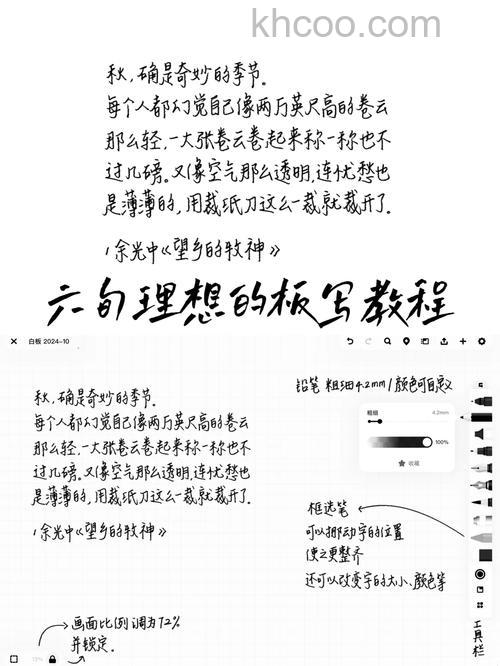 khcoo.com
秋，确是奇妙的季节。
每个人都幻觉自己像两万英尺高的卷云
那么轻，一大张卷云卷起来称一称也不
过几磅。又像空气那么透明，连忧愁也
是薄薄的，用裁纸刀这么一裁就裁开了。
余光中《望乡的牧神》
六旬理想的板写教程
白板 2024-10
秋，确是奇妙的季节。
每个人都幻觉自己像两万英尺高的卷云
那么轻，一大张卷云卷起来称一称也不
过几磅。又像空气那么透明，连忧愁也
是薄薄的，用裁纸刀这么一裁就裁开了。
余光中《望乡的牧神》
铅笔 粗细4.2mm/颜色可自定义
粗细 4.2mm
100%
收藏
框选笔
可以挪动字的位置
使之更整齐
还可以改变字的大小、颜色等
画面比例调为72%
并锁定。
工具栏